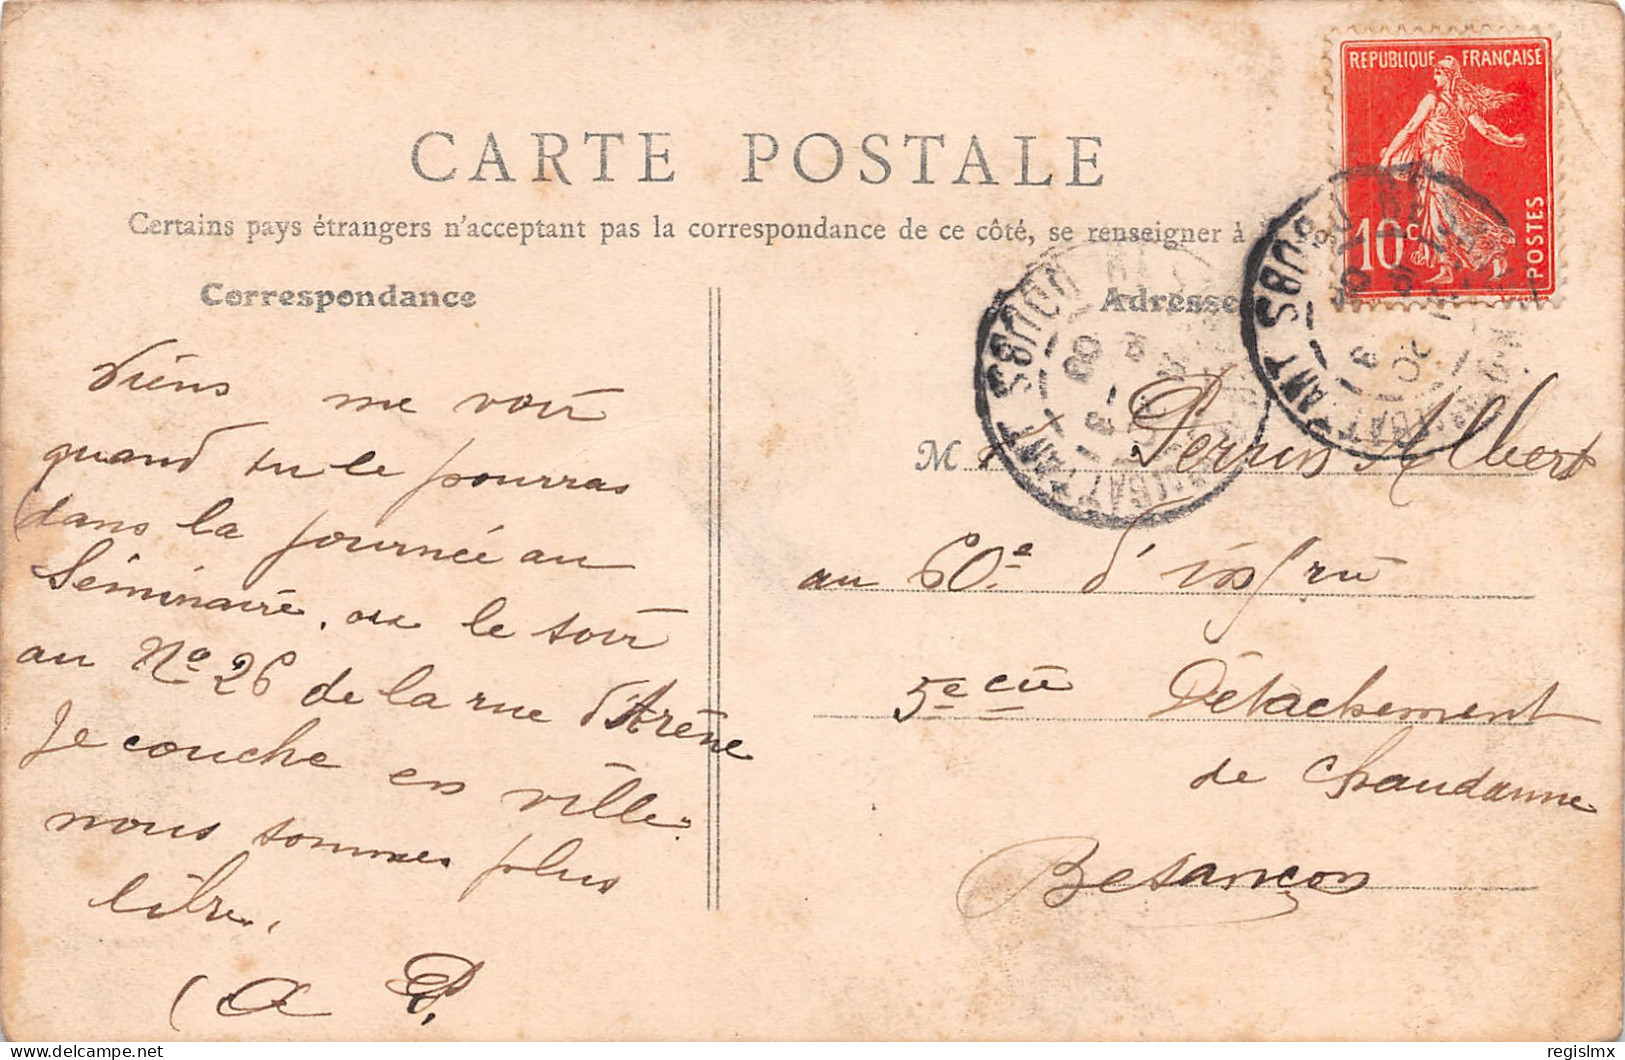 CARTE POSTALE
Certains pays étrangers n'acceptent pas la correspondance de ce côté, se renseigner à
Correspondance
Adresse
REPUBLIQUE FRANÇAISE
10c
POSTES
DOUBS
DOUBS
Viens me voir
quand tu le pourras
dans la journée au
Séminaire, ou le soir
au No 26 de la rue d'Arène
Je couche en ville.
nous sommes plus
libre.
A P.
M Perrin Albert
au 60e d'infrie
5e cie Détachement
de Chaudanne
Besançon
regislmx